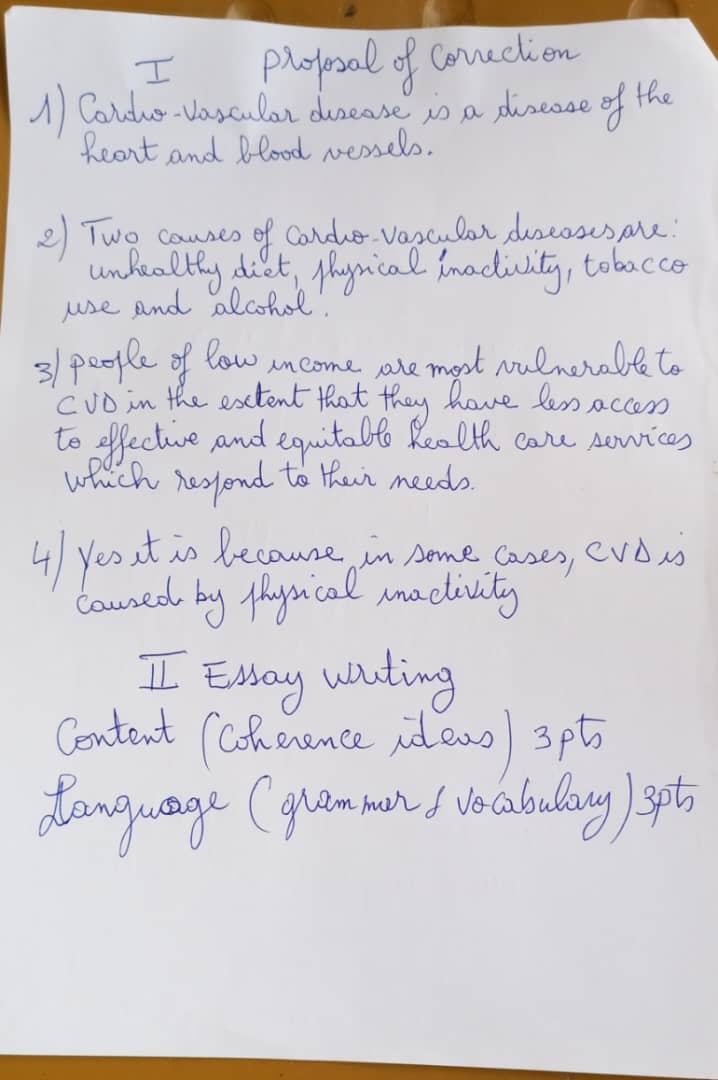 I proposal of correction
1) Cardio-Vascular disease is a disease of the
heart and blood vessels.
2) Two causes of Cardio-Vascular diseases are:
unhealthy diet, physical inactivity, tobacco
use and alcohol.
3) people of low income are most vulnerable to
CVD in the extent that they have less access
to effective and equitable health care services
which respond to their needs.
4) Yes it is because in some cases, CVD is
caused by physical inactivity
II Essay writing
Content (Coherence ideas) 3pts
Language (grammar & vocabulary) 3pts